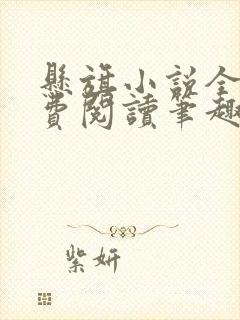 懸旗小説全
費閱讀筆趣
紫妍